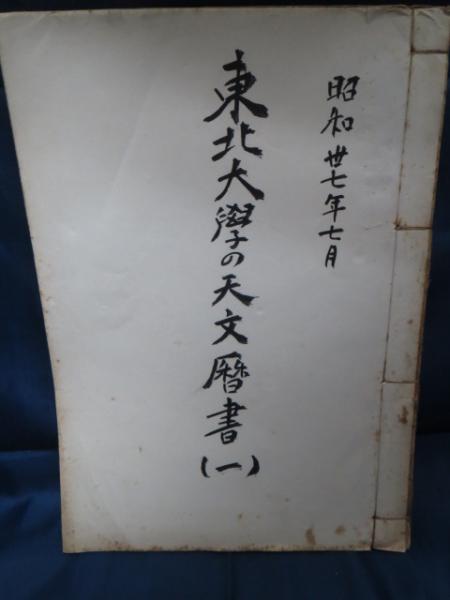 昭和卅七年七月
東北大學の天文暦書(一)